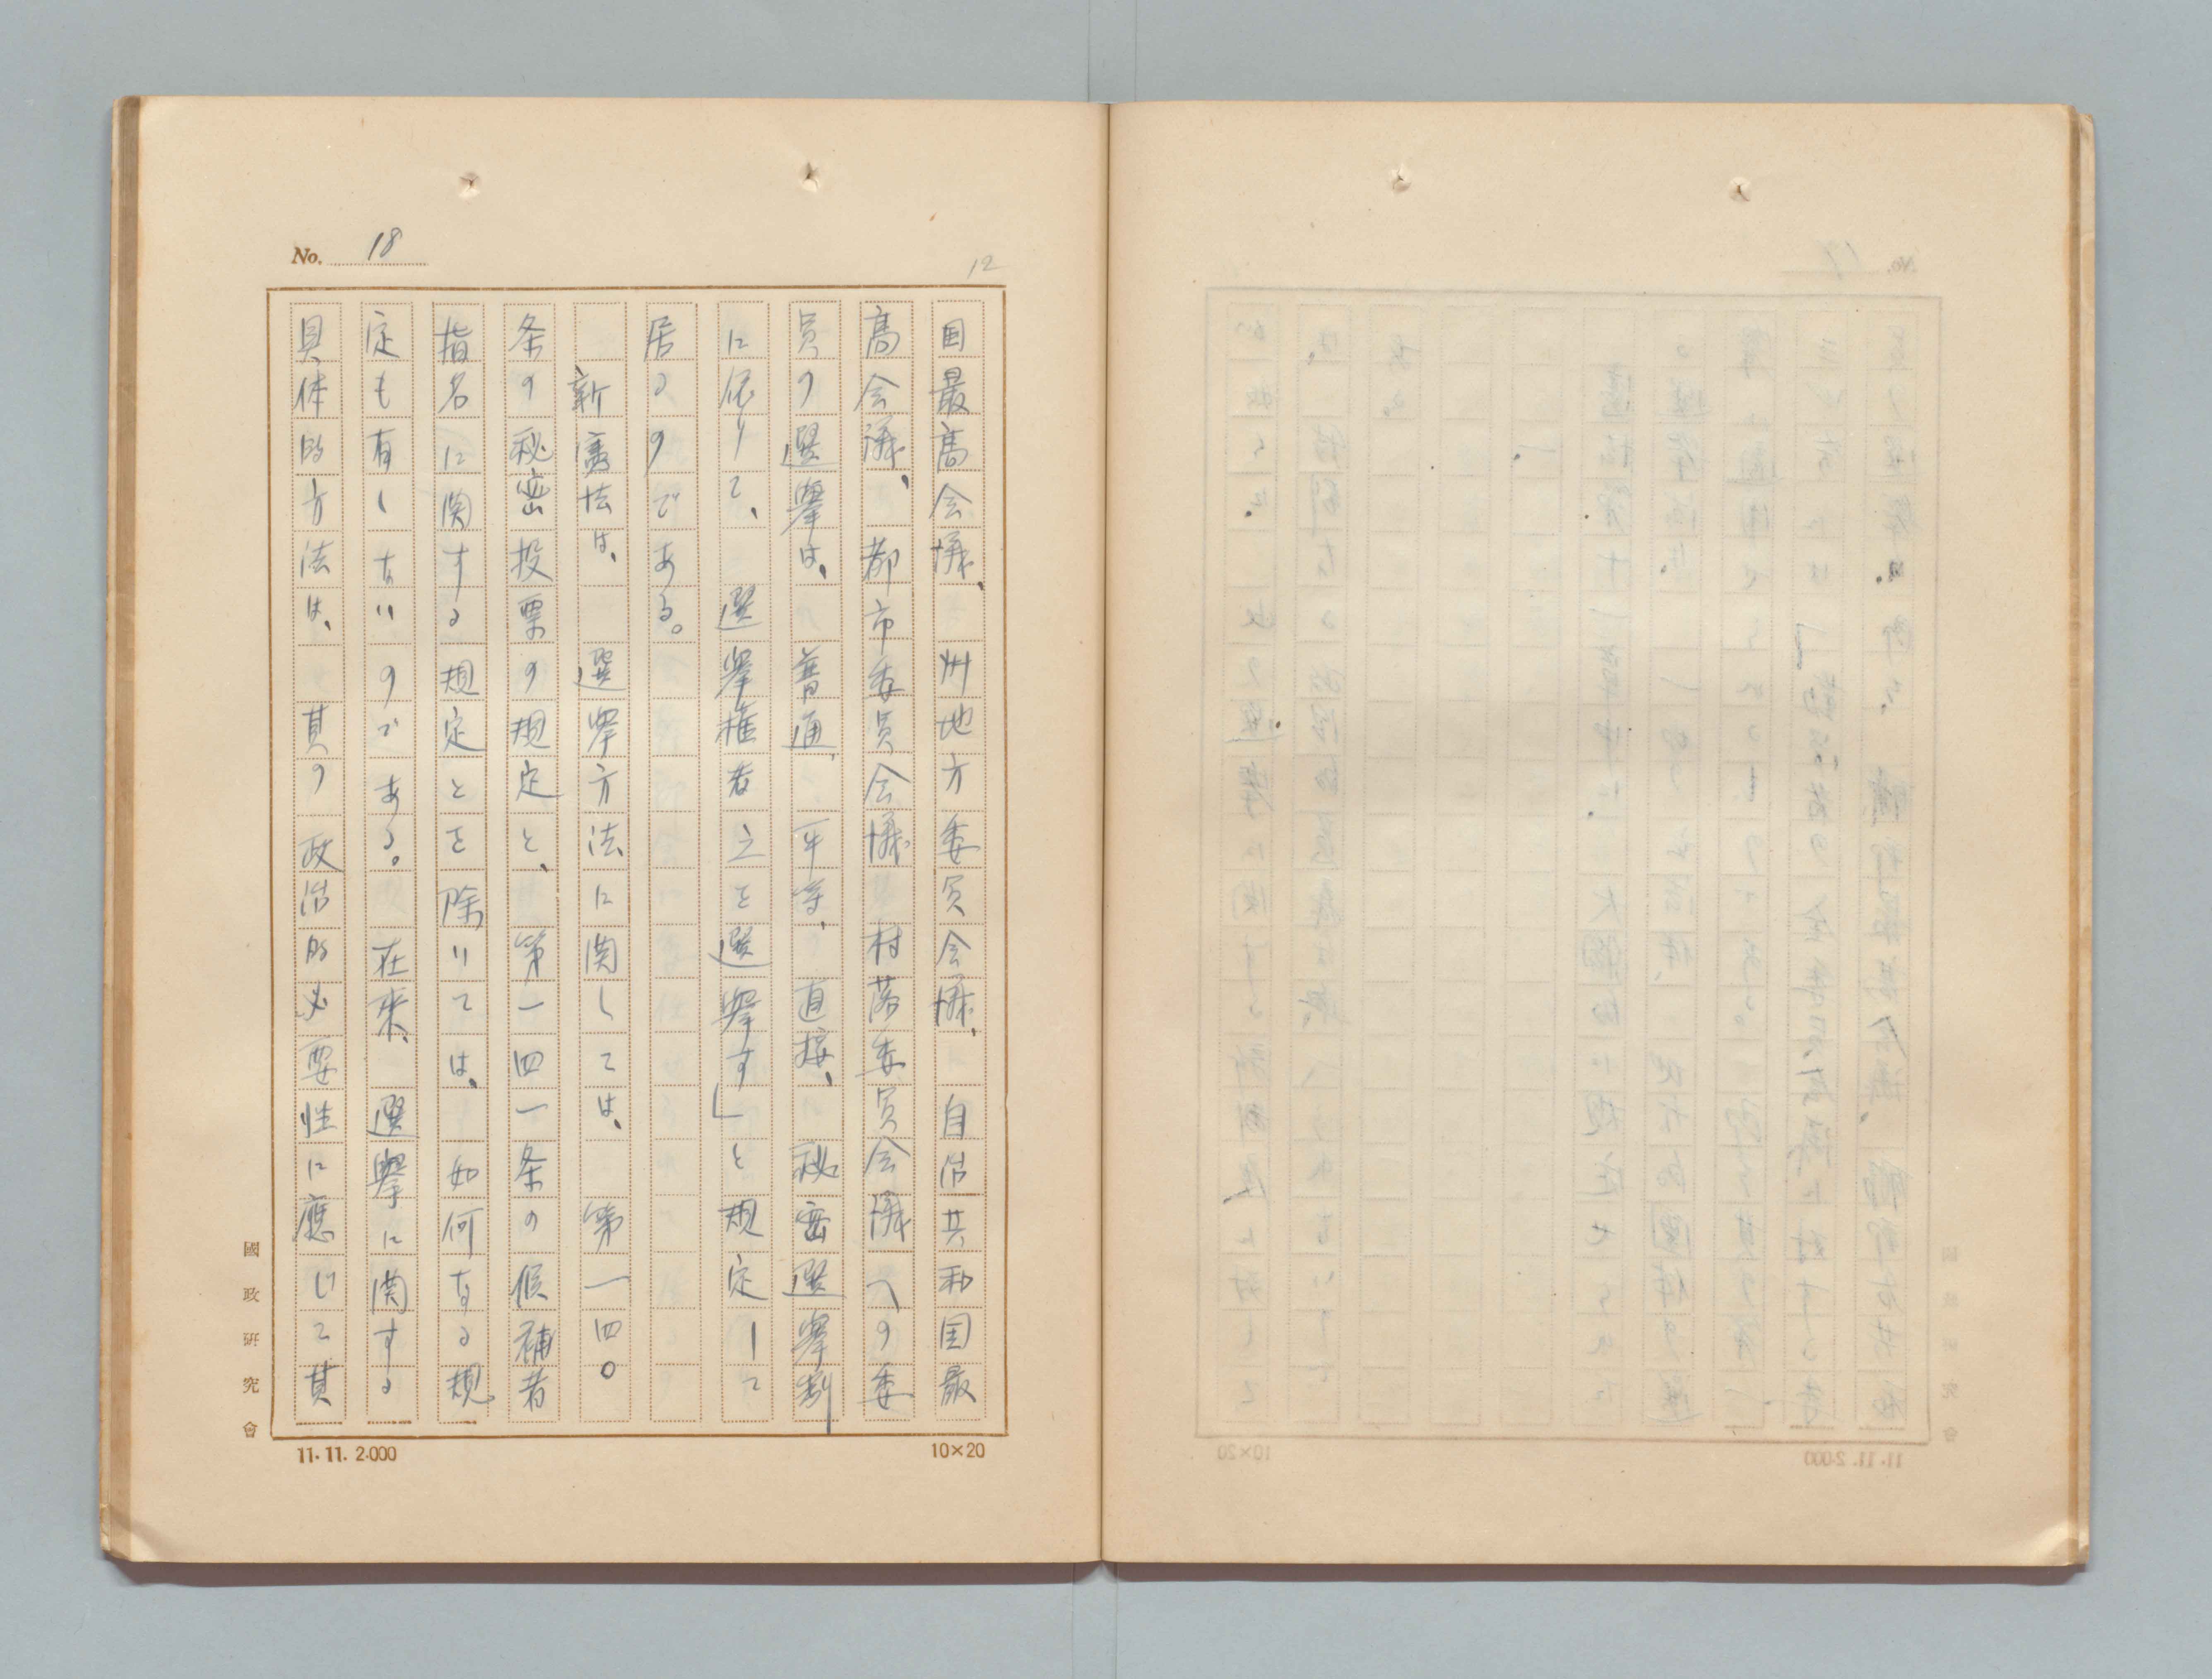 No. 18
12
国最高会議、州地方委員会議、自治共和国最
高会議、都市委員会議村落委員会議への委
員の選挙は、普通、平等、直接、秘密選挙制
に依りて、選挙権者之を選挙す」と規定して
居るのである。
新憲法は、選挙方法に関しては、第一四〇
条の秘密投票の規定と、第一四一条の候補者
指名に関する規定とを除いては、如何なる規
定も有しないのである。在来、選挙に関する
具体的方法は、其の政治的必要性に應じて其
國政研究會
11.11. 2.000
10×20